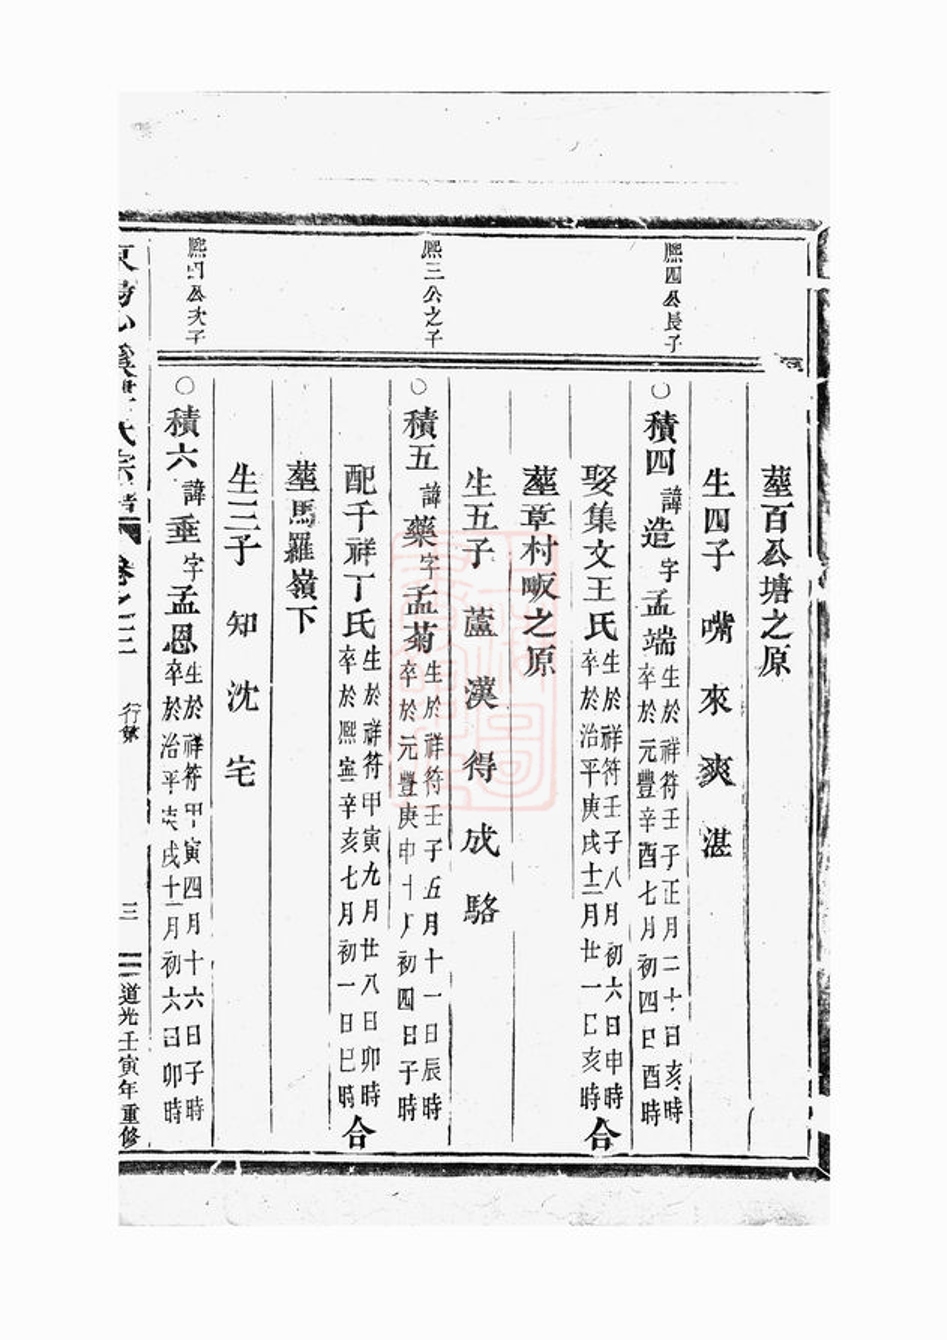 塟百公塘之原
生四子 嘴 來 爽 湛
熈四公長子
○積四諱造字孟端生於祥符壬子正月二十日亥時
卒於元豐辛酉七月初四日酉時
娶集文王氏生於祥符壬子八月初六日申時
卒於治平庚戌十二月廿一日亥時合
塟章村畈之原
生五子 蘆 漢 得 成 駱
熈三公之子
○積五諱藥字孟菊生於祥符壬子五月十一日辰時
卒於元豐庚申十月初四日子時
配千祥丁氏生於祥符甲寅九月廿八日卯時
卒於熈寍辛亥七月初一日巳時合
塟馬羅嶺下
生三子 知 沈 宅
熈四公次子
○積六諱垂字孟恩生於祥符甲寅四月十六日子時
卒於治平戌十一月初六日卯時
氏宗譜 卷之三 行第 三 道光壬寅年重修